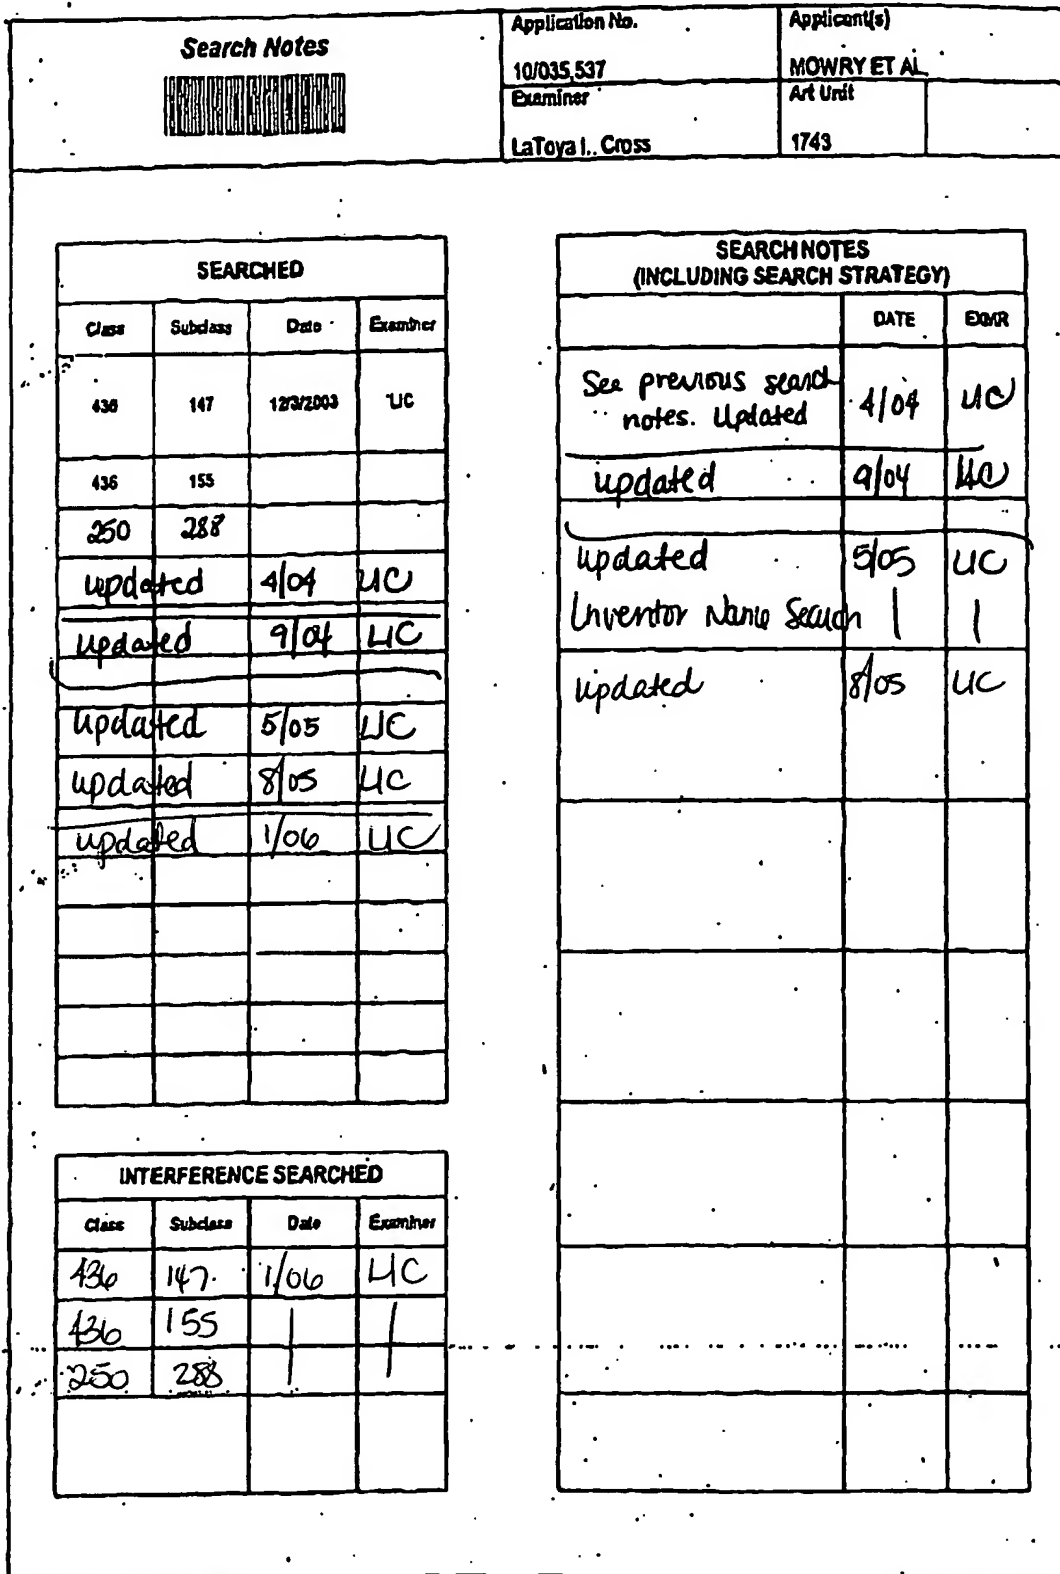 Search Notes
Application No.
10/035,537
Applicant(s)
MOWRY ET AL.
Examiner
LaToya I. Cross
Art Unit
1743
SEARCHED
Class Subclass Date Examiner
436 147 12/3/2003 LIC
436 155
250 288
updated 4/04 LIC
updated 9/04 LIC
updated 5/05 LIC
updated 8/05 LIC
updated 1/06 LIC
INTERFERENCE SEARCHED
Class Subclass Date Examiner
436 147 1/06 LIC
436 155 | |
250 288
SEARCH NOTES
(INCLUDING SEARCH STRATEGY)
DATE EXMR
See previous search
notes. Updated 4/04 LIC
updated 9/04 LIC
updated 5/05 LIC
Inventor Name Search | |
updated 8/05 LIC